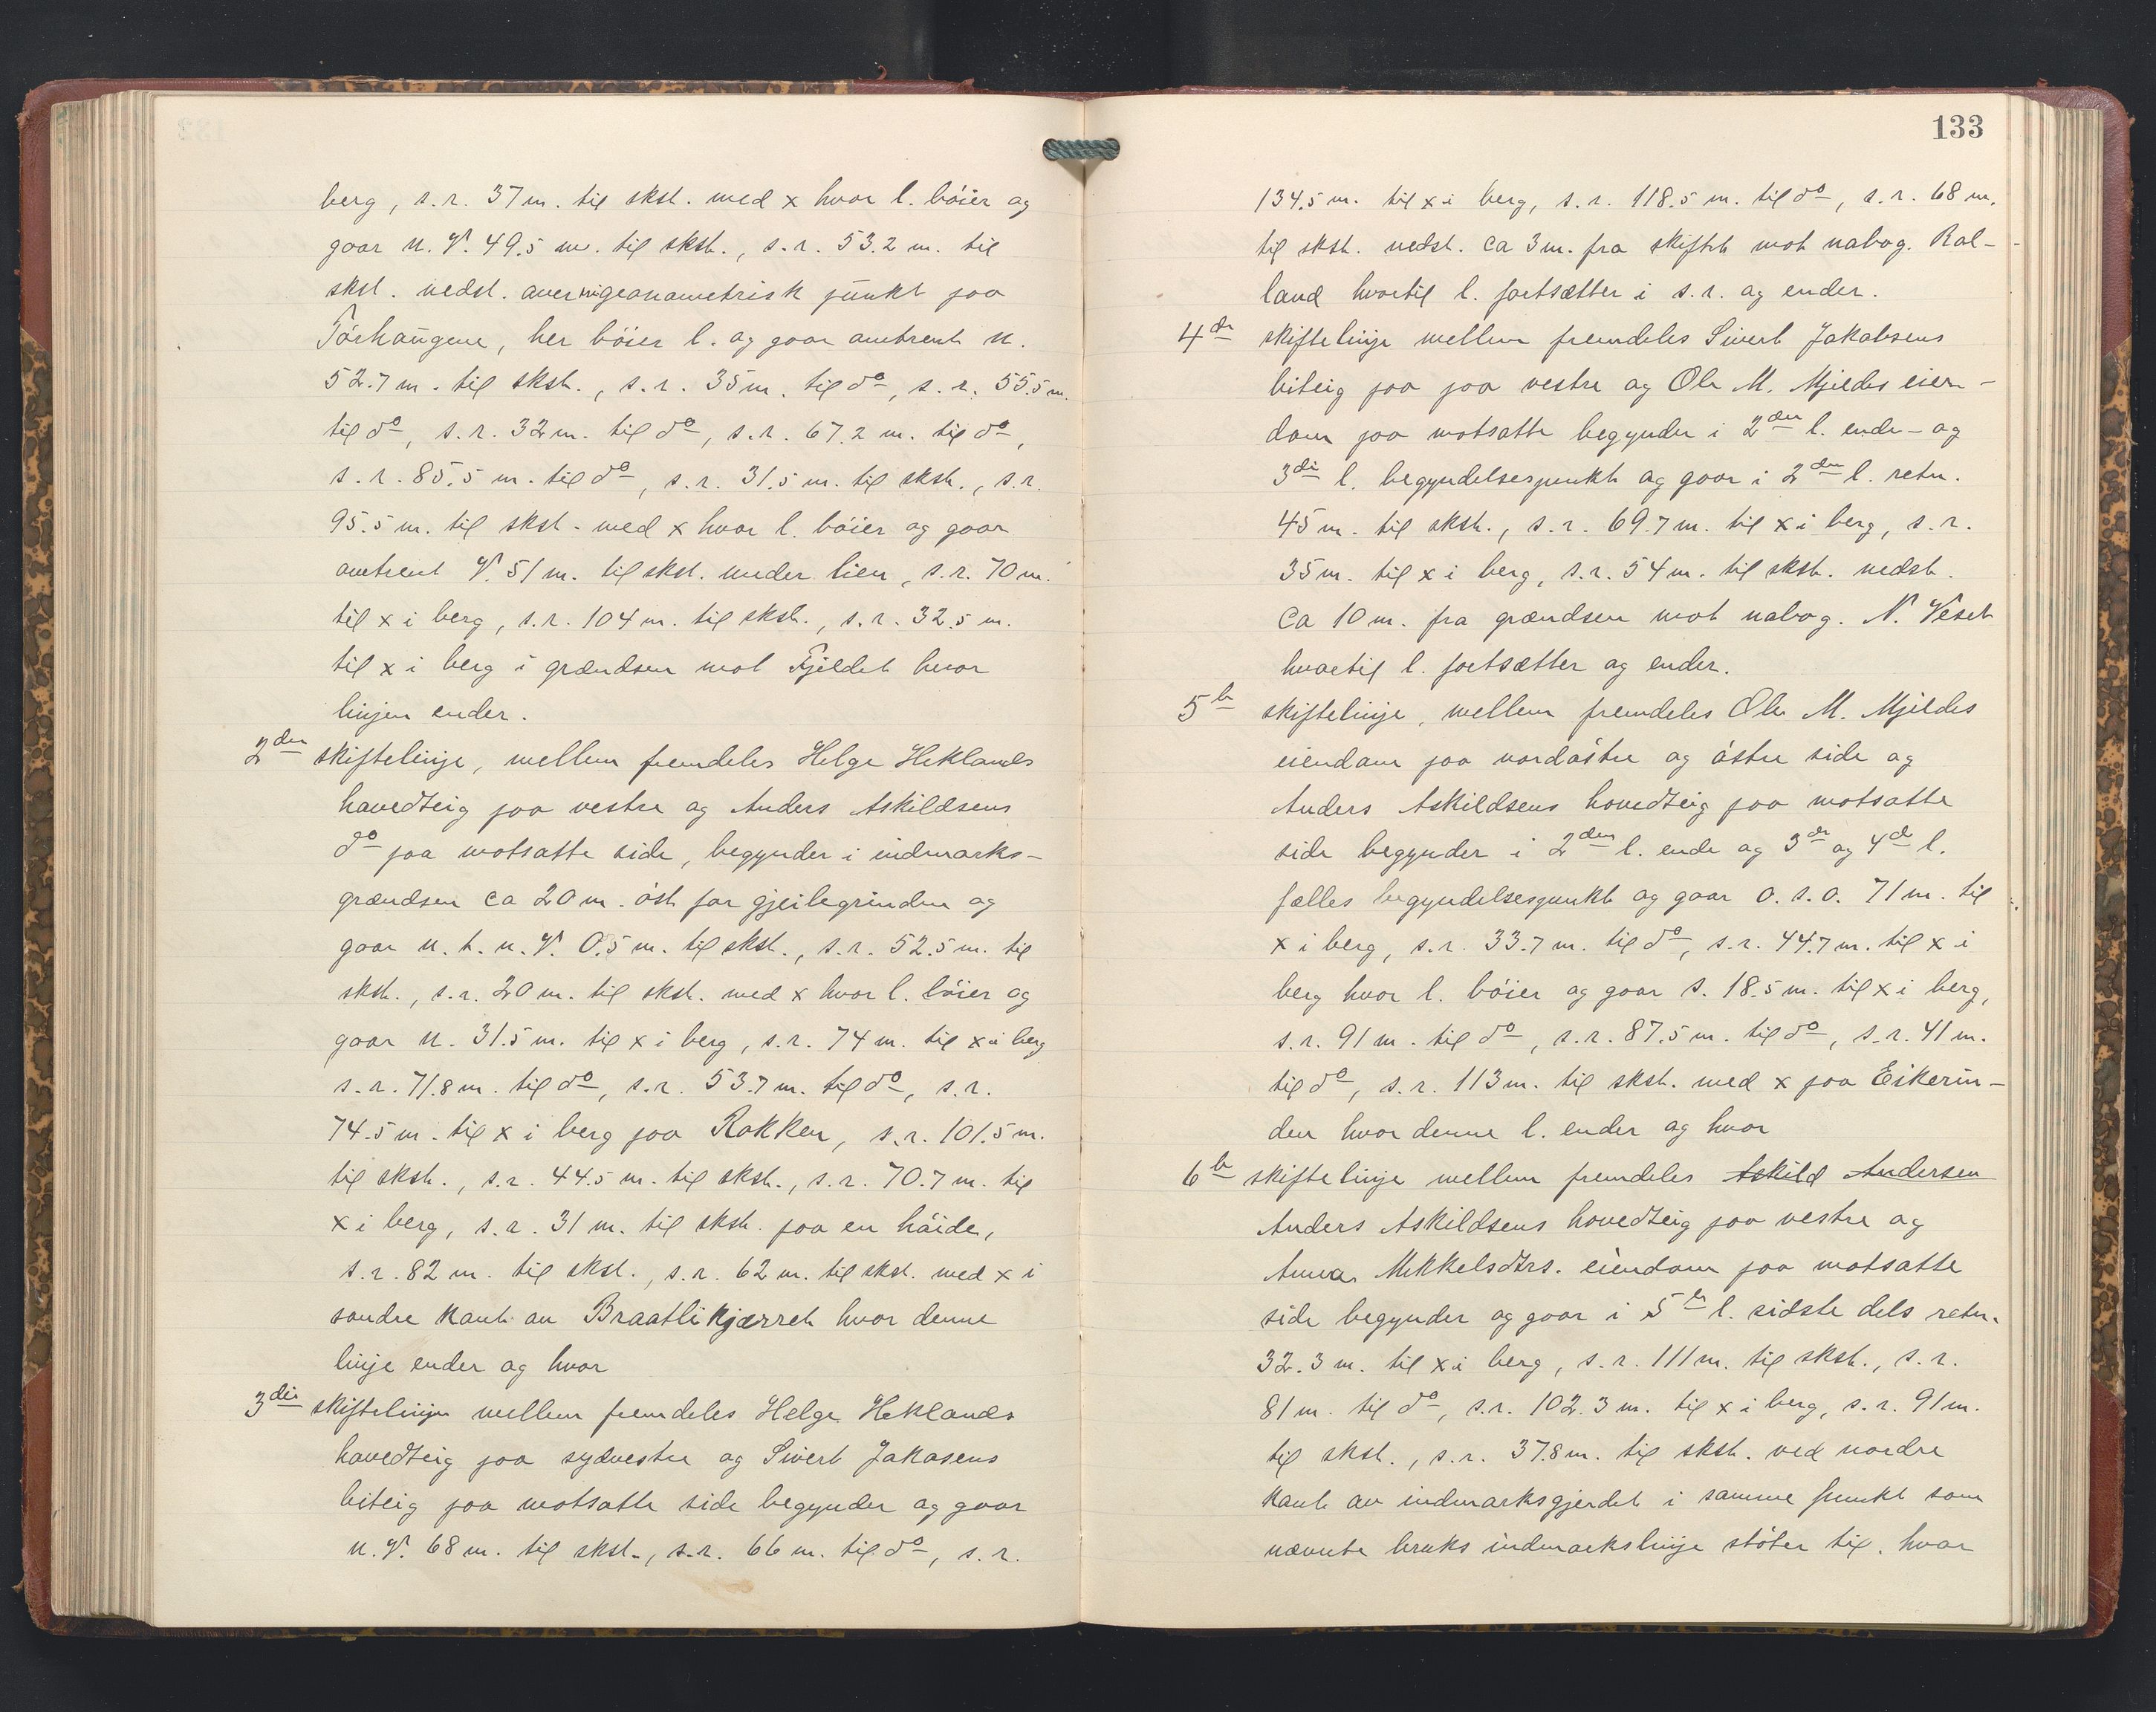 berg, s.r. 37 m. til skst. med x hvor l. bóier og
gaar n. V. 49.5 m. til skst., s.r. 53.2 m. til
skst. nedst. punkt paa
Tórhaugene, her bóier l. og gaar omtrent n.
52.7 m. til skst., s.r. 35 m. til do, s.r. 55.5 m.
til do, s.r. 32 m. til do, s.r. 67.2 m. til do,
s.r. 85.5 m. til do, s.r. 31.5 m. til skst., s.r.
95.5 m. til skst. med x hvor l. bóier og gaar
omtrent V. 51 m. til skst. under lien, s.r. 70 m.
til x i berg, s.r. 104 m. til skst., s.r. 32.5 m.
til x i berg i grændsen mot Fjeldet hvor
linjen ender.
2den skiftelinje, mellem fremdeles Helge Heklands
hovedteig paa vestre og Anders Askildsens
do paa motsatte side, begynder i indmarks-
grændsen ca 20 m. óst for gjeilegrinden og
gaar n. t. n. V. 0.5 m. til skst., s.r. 52.5 m. til
skst., s.r. 20 m. til skst. med x hvor l. bóier og
gaar n. 31.5 m. til x i berg, s.r. 74 m. til x i berg
s.r. 71.8 m. til do, s.r. 53.7 m. til do, s.r.
74.5 m. til x i berg paa Rokken, s.r. 101.5 m.
til skst., s.r. 44.5 m. til skst., s.r. 70.7 m. til
x i berg, s.r. 31 m. til skst. paa en hóide,
s.r. 82 m. til skst., s.r. 62 m. til skst. med x i
sondre kant av Braatlikjærret hvor denne
linje ender og hvor
3die skiftelinje mellem fremdeles Helge Heklands
hovedteig paa sydvestre og Sivert Jakasens
biteig paa motsatte side begynder og gaar
n. V. 68 m. til skst., s.r. 66 m. til do, s.r.
133
134.5 m. til x i berg, s.r. 118.5 m. til do, s.r. 68 m.
til skst. nedst. ca 3 m. fra skiftet mot nabog. Rol-
land hvortil l. fortsætter i s.r. og ender.
4de skiftelinje mellem fremdeles Sivert Jakobsens
biteig paa paa vestre og Ole M. Mjeldes eien-
dom paa motsatte begynder i 2den l. ende- og
3die l. begyndelsespunkt og gaar i 2den l. retn.
45 m. til skst., s.r. 69.7 m. til x i berg, s.r.
35 m. til x i berg, s.r. 54 m. til skst. nedst.
ca 10 m. fra grændsen mot nabog. N. Veset
hvortil l. fortsætter og ender.
5te skiftelinje, mellem fremdeles Ole M. Mjeldes
eiendom paa nordóstre og óstre side og
Anders Askildsens hovedteig paa motsatte
side begynder i 2den l. ende og 3de og 4de l.
fælles begyndelsespunkt og gaar o. s. o. 71 m. til
x i berg, s.r. 33.7 m. til do, s.r. 44.7 m. til x i
berg hvor l. bóier og gaar s. 18.5 m. til x i berg,
s.r. 91 m. til do, s.r. 87.5 m. til do, s.r. 41 m.
til do, s.r. 113 m. til skst. med x paa Eikerin-
den hvor denne l. ender og hvor
6te skiftelinje mellem fremdeles Askild Andersen
Anders Askildsens hovedteig paa vestre og
Anna Mikkelsdtrs. eiendom paa motsatte
side begynder og gaar i 5te l. sidste dels retn.
32.3 m. til x i berg, s.r. 111 m. til skst., s.r.
81 m. til do, s.r. 102.3 m. til x i berg, s.r. 91 m.
til skst., s.r. 37.8 m. til skst. ved nordre
kant av indmarksgjerdet i samme punkt som
nævnte bruks indmarkslinje stóter til, hvor